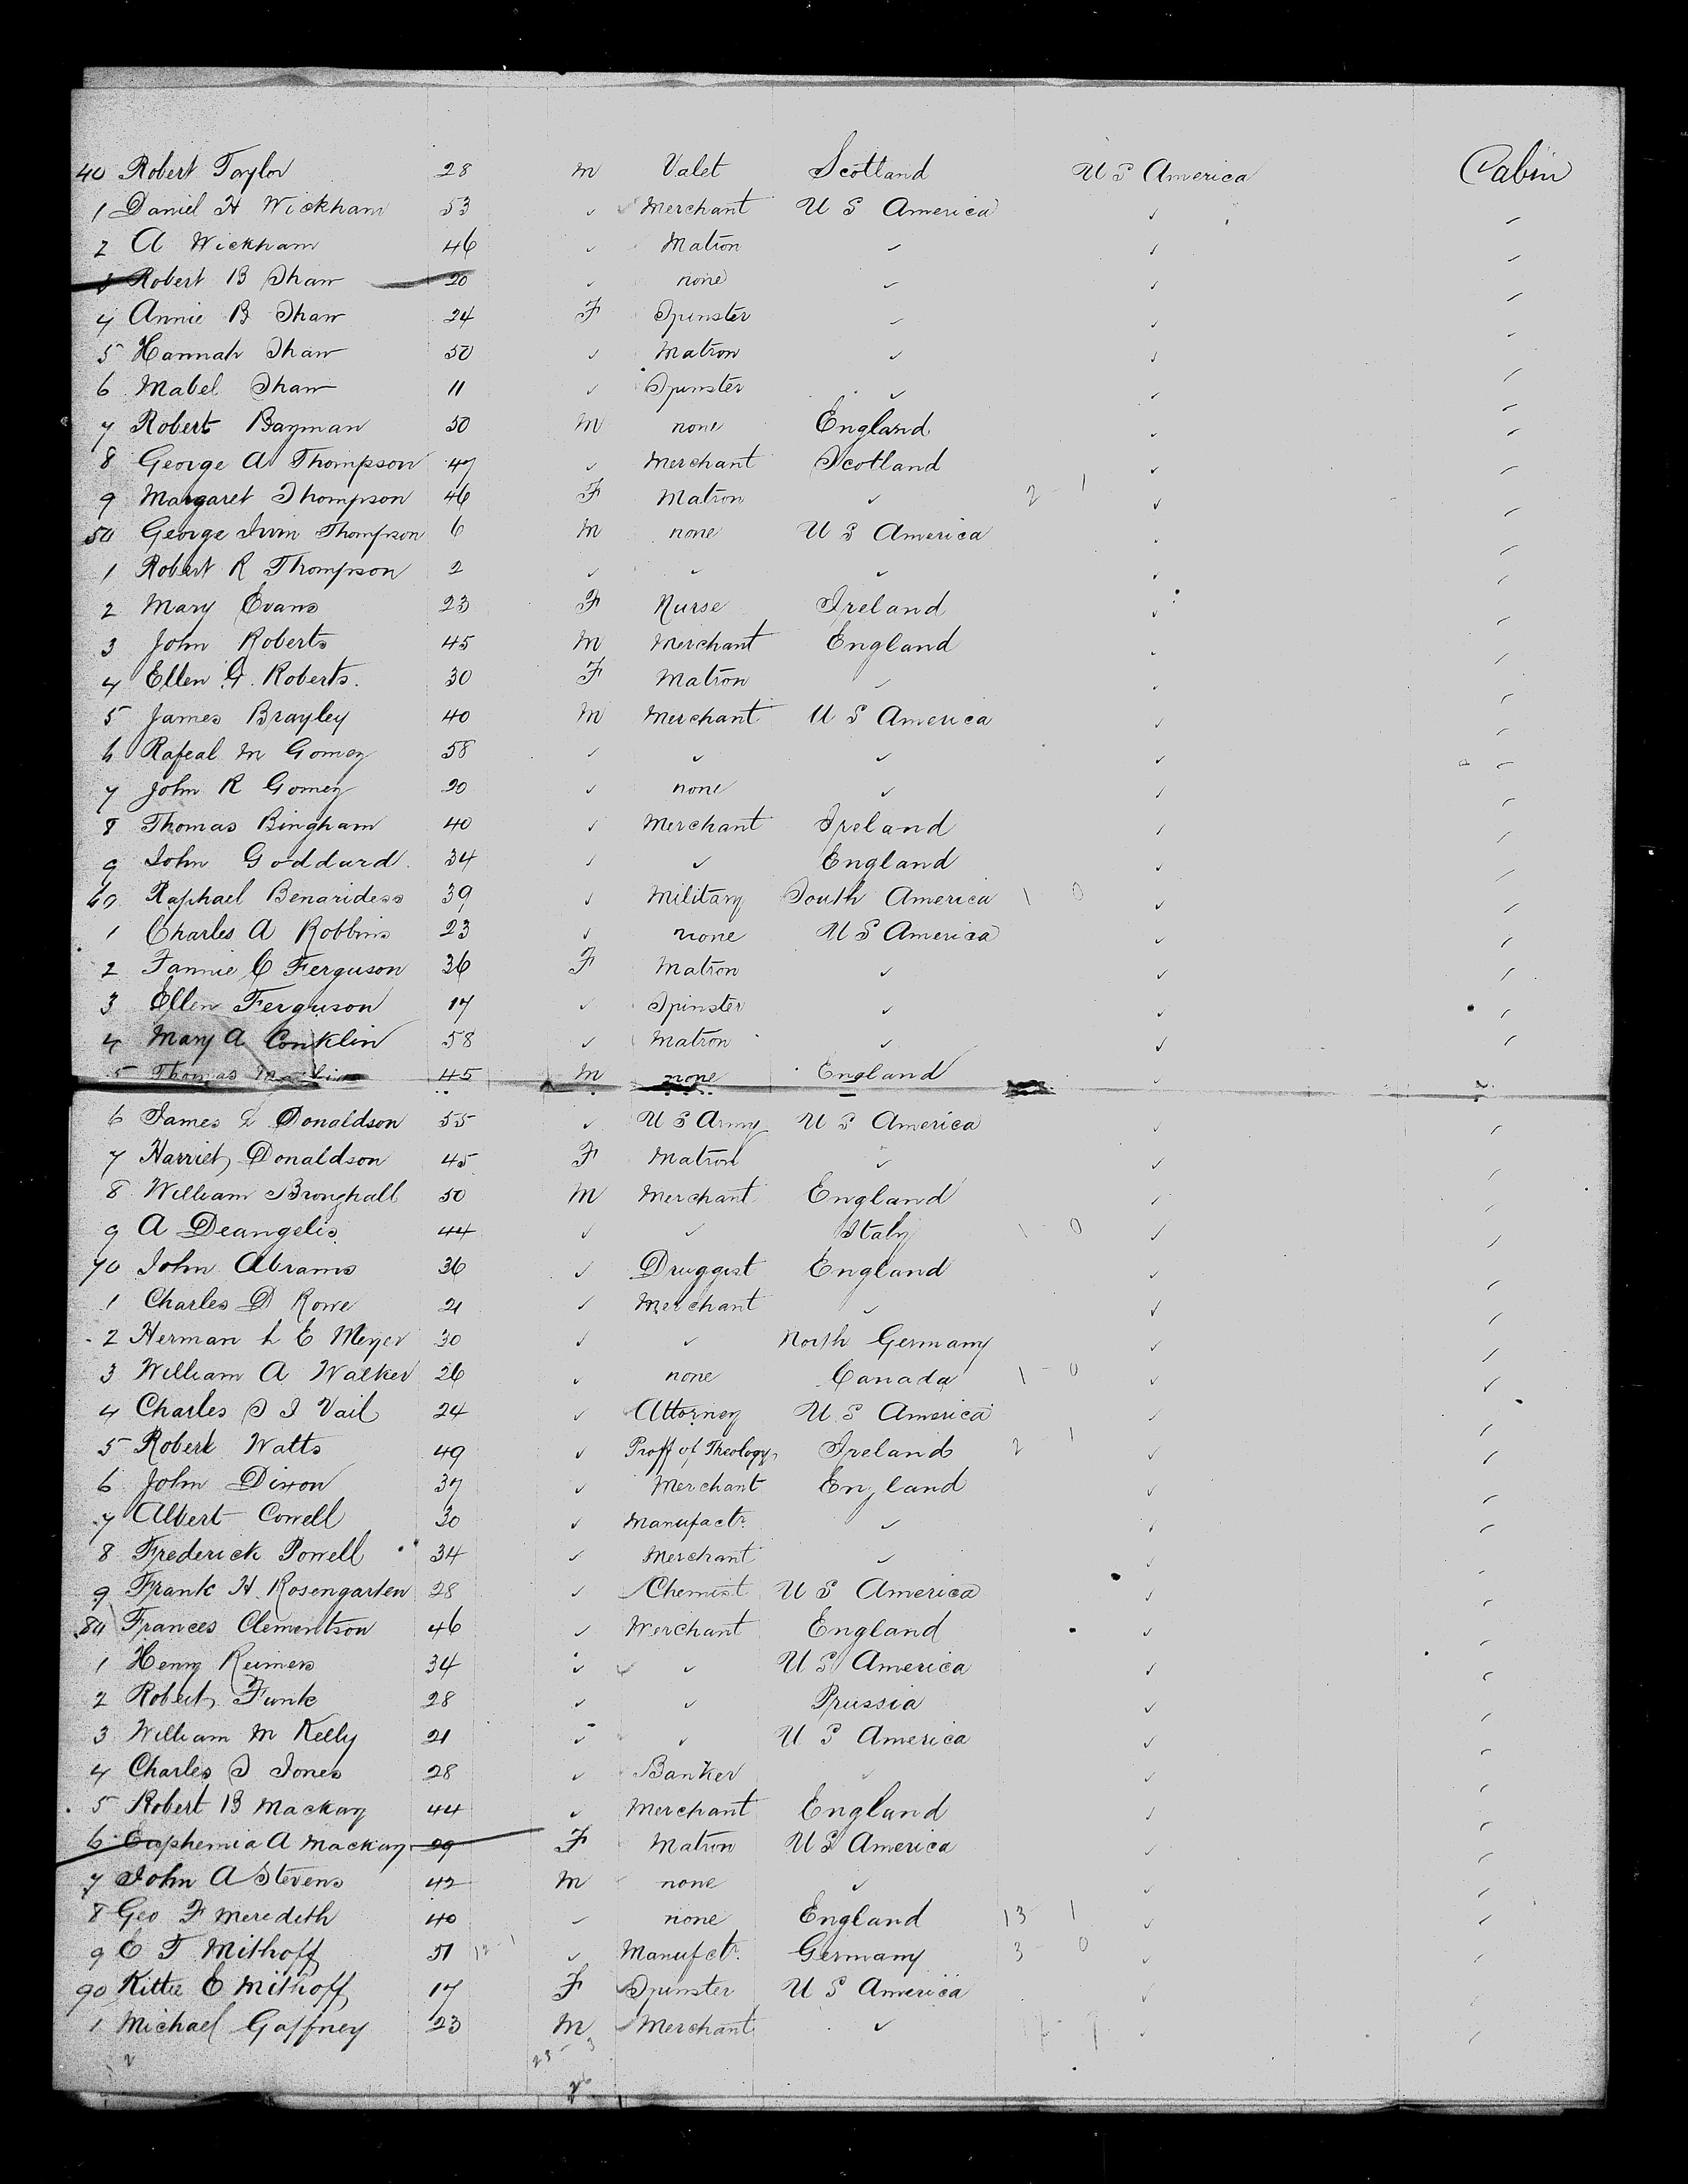 40 Robert Taylor 28 m Valet Scotland U S America Cabin
1 Daniel H Wickham 53 ✓ Merchant U S America ✓ ✓
2 A Wickham 46 ✓ Matron ✓ ✓ ✓
Robert B Shaw 20 ✓ none ✓ ✓ ✓
4 Annie B Shaw 24 F Spinster ✓ ✓ ✓
5 Hannah Shaw 50 ✓ Matron ✓ ✓ ✓
6 Mabel Shaw 11 ✓ Spinster ✓ ✓ ✓
7 Robert Bayman 30 M none England ✓ ✓
8 George A Thompson 47 ✓ Merchant Scotland ✓ ✓
9 Margaret Thompson 46 F Matron ✓ 2 - 1 ✓ ✓
50 George Irvin Thompson 6 M none U S America ✓ ✓
1 Robert R Thompson 2 ✓ ✓ ✓ ✓ ✓
2 Mary Evans 23 F Nurse Ireland ✓ ✓
3 John Roberts 45 M Merchant England ✓ ✓
4 Ellen G. Roberts. 30 F Matron ✓ ✓ ✓
5 James Brayley 40 M Merchant U S America ✓ ✓
6 Rafeal M Gomez 58 ✓ ✓ ✓ ✓ ✓
7 John R Gomez 20 ✓ none ✓ ✓ ✓
8 Thomas Bingham 40 ✓ Merchant Ireland ✓ ✓
9 John Goddard 34 ✓ ✓ England ✓ ✓
60 Raphael Benaridess 39 ✓ Military South America 1 0 ✓ ✓
1 Charles A Robbins 23 ✓ none U S America ✓ ✓
2 Fannie C Ferguson 36 F Matron ✓ ✓ ✓
3 Ellen Ferguson 17 ✓ Spinster ✓ ✓ ✓
4 Mary A Conklin 58 ✓ Matron ✓ ✓ ✓
5 Thomas 45 M none England ✓
6 James L Donaldson 55 ✓ U S Army U S America ✓ ✓
7 Harriet Donaldson 45 F Matron ✓ ✓ ✓
8 William Broughall 50 M Merchant England ✓ ✓
9 A Deangelis 44 ✓ ✓ Italy 1 0 ✓ ✓
70 John Abrams 36 ✓ Druggist England ✓ ✓
1 Charles D Rowe 21 ✓ Merchant ✓ ✓ ✓
2 Herman L E Meyer 30 ✓ ✓ North Germany ✓ ✓
3 William A Walker 26 ✓ none Canada 1 - 0 ✓ ✓
4 Charles S I Vail 24 ✓ Attorney U S America ✓ ✓
5 Robert Watts 49 ✓ Proff of Theology Ireland 2 - 1 ✓ ✓
6 John Dixon 37 ✓ Merchant England ✓ ✓
7 Albert Cowell 30 ✓ Manufactr. ✓ ✓ ✓
8 Frederick Powell 34 ✓ Merchant ✓ ✓ ✓
9 Frank H. Rosengarten 28 ✓ Chemist U S America ✓ ✓
80 Frances Clementson 46 ✓ Merchant England ✓ ✓
1 Henry Reimers 34 ✓ ✓ U S America ✓ ✓
2 Robert Funk 28 ✓ ✓ Prussia ✓ ✓
3 William M Kelly 21 ✓ ✓ U S America ✓ ✓
4 Charles S Jones 28 ✓ Banker ✓ ✓ ✓
5 Robert B Mackay 44 ✓ Merchant England ✓ ✓
6 Euphemia A Mackay 29 F Matron U S America ✓ ✓
7 John A Stevens 42 M none ✓ ✓ ✓
8 Geo F Meredith 40 ✓ none England 13 1 ✓ ✓
9 C T Mithoff 51 12 - 1 ✓ Manufctr. Germany 3 - 0 ✓ ✓
90 Kittie E Mithoff 17 F Spinster U S America ✓ ✓
1 Michael Gaffney 23 M Merchant ✓ ✓ ✓
2 23 - 3
26